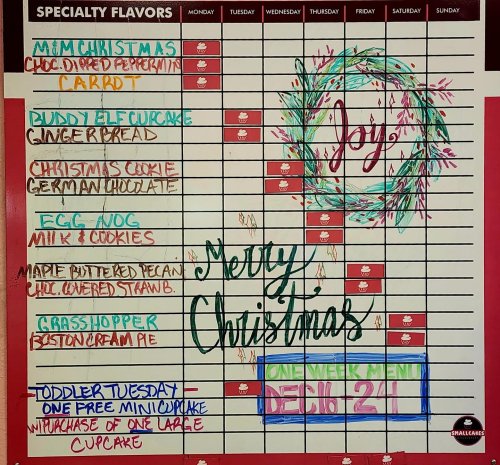 SPECIALTY FLAVORS MONDAY TUESDAY WEDNESDAY THURSDAY FRIDAY SATURDAY SUNDAY
M&M CHRISTMAS
CHOC. DIPPED PEPPERMIN
CARROT
BUDDY ELF CUPCAKE
GINGERBREAD
Joy
CHRISTMAS COOKIE
GERMAN CHOCOLATE
EGG NOG
MILK & COOKIES
Merry
MAPLE BUTTERED PECAN
CHOC. COVERED STRAWB.
Christmas
GRASSHOPPER
BOSTON CREAM PIE
ONE WEEK MENU
DEC 16-24
TODDLER TUESDAY
ONE FREE MINI CUPCAKE
W/PURCHASE OF ONE LARGE
CUPCAKE
SMALLCAKES